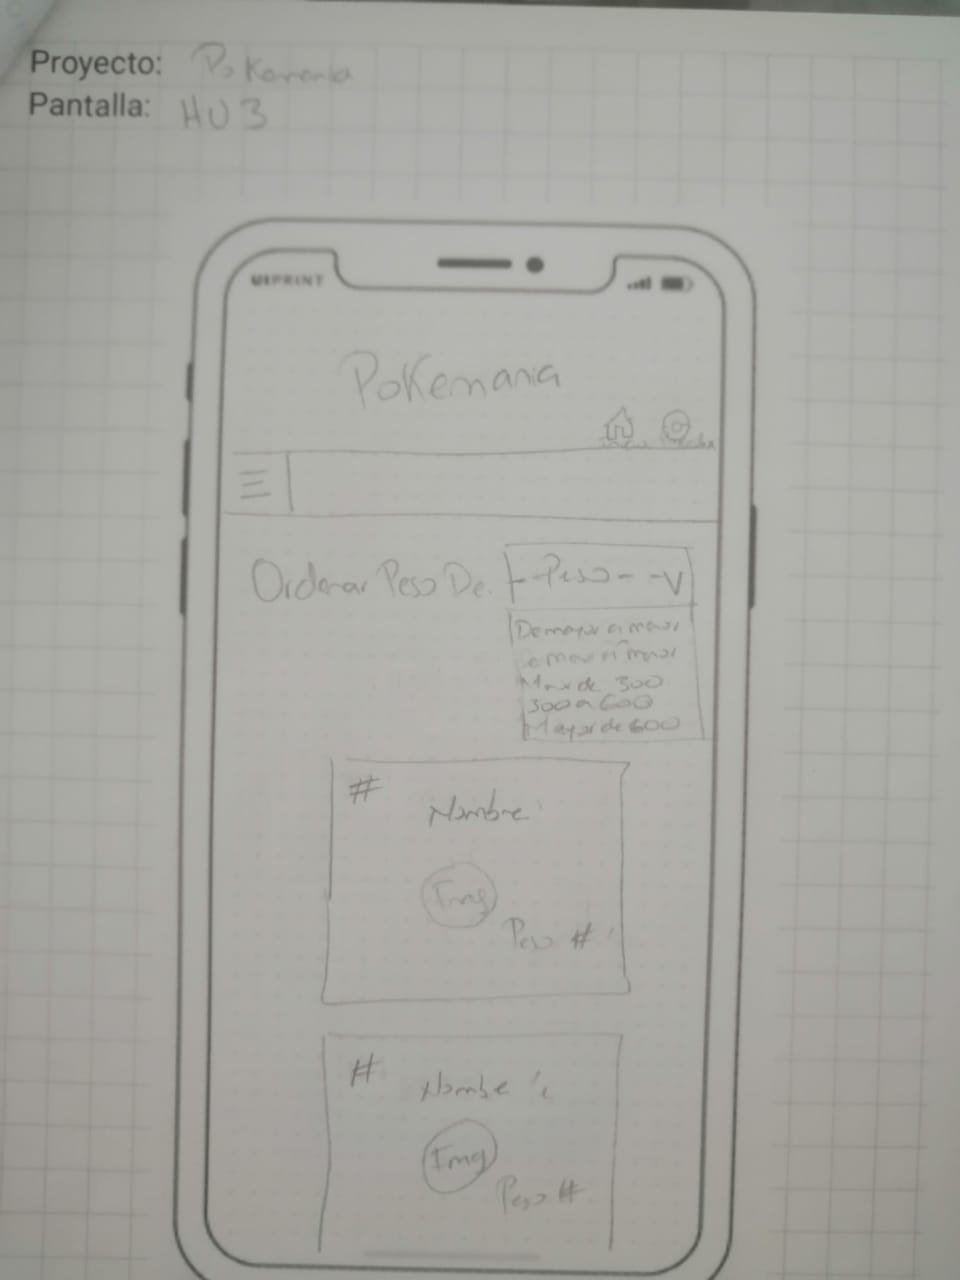 Proyecto: Pokemania
Pantalla: HU3
UIPRINT
Pokemania
Ordenar Peso De.
--Peso--
De mayor a menor
300
300 a 600
Mayor de 600
#
Nombre:
Img
Peso #
#
Nombre:
Img
Peso #